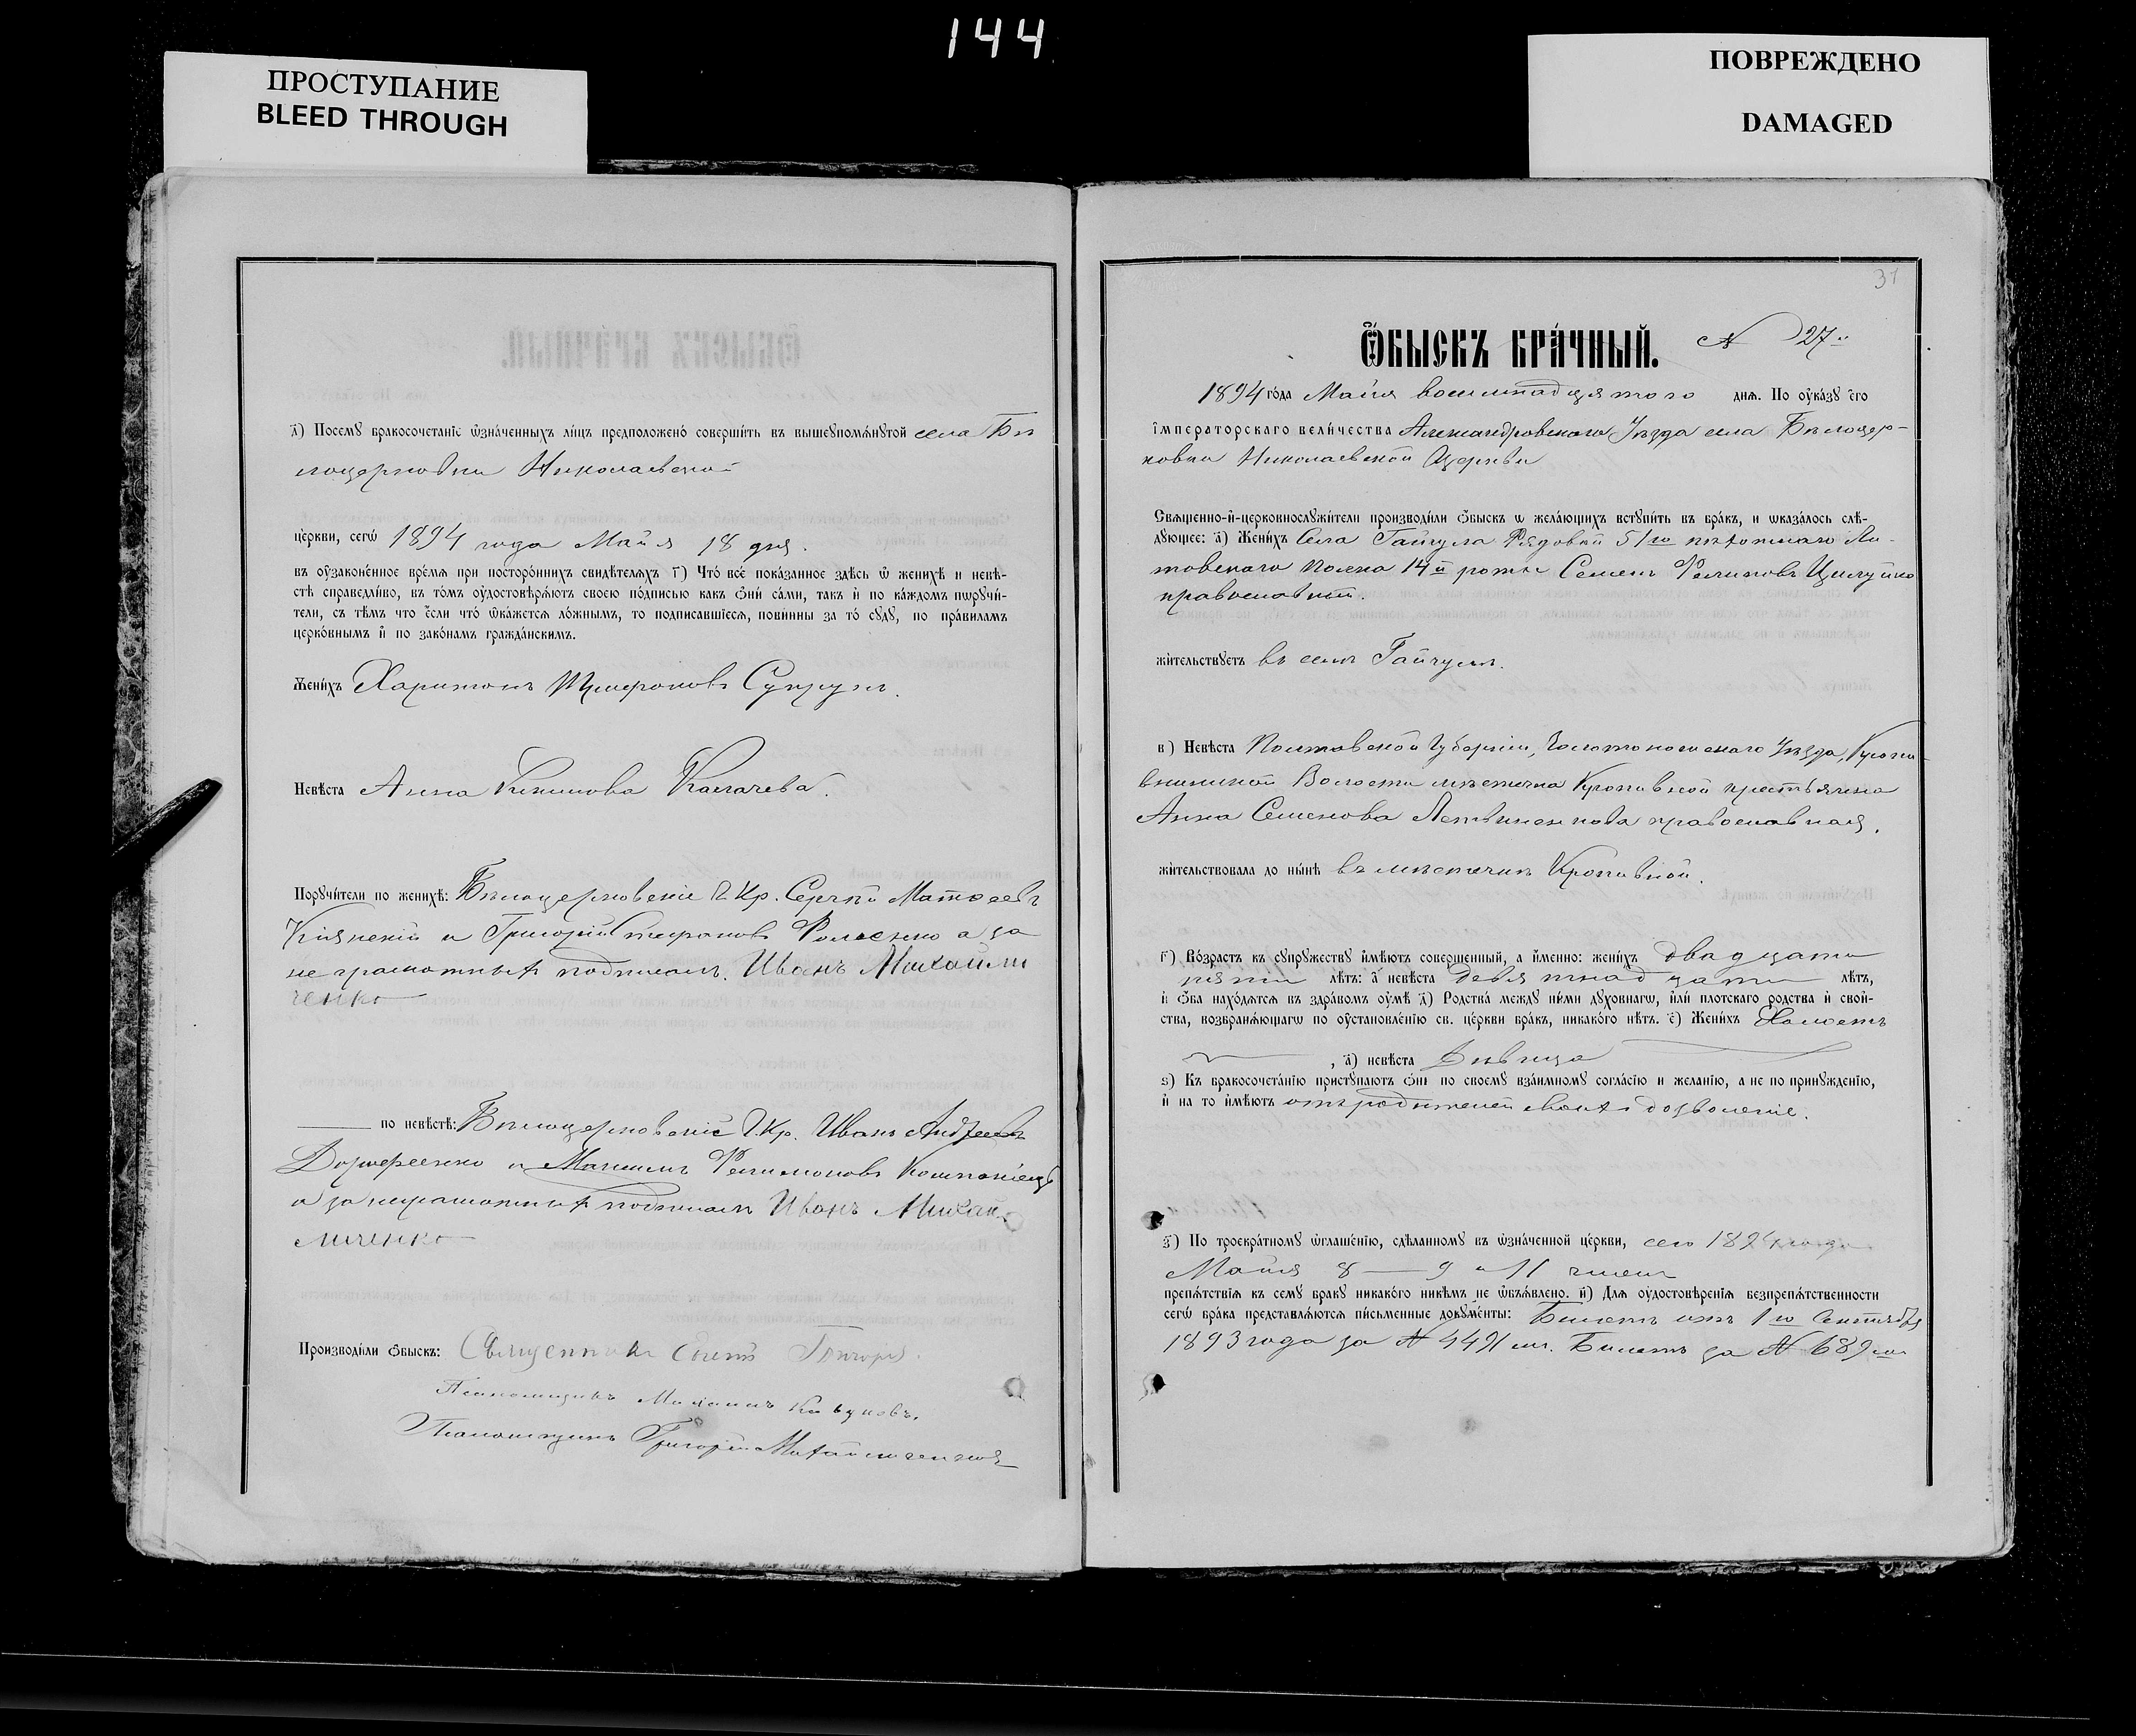 144
ПРОСТУПАНИЕ
BLEED THROUGH
ПОВРЕЖДЕНО
DAMAGED
д) Посемꙋ бракосочетанїе ѡзначенныхъ лицъ предположено совершить въ вышеꙋпомѧнꙋтой села Бѣ
лоцерковки Николаевской
церкви, сегѡ 1894 года Маія 18 дня.
въ оу҆законенное времѧ при постороннихъ свидѣтелѧхъ г) Что все показанное здѣсь ѡ женихѣ и невѣ-
стѣ справедливо, въ томъ оу҆достовѣрѧютъ своею подписью какъ ѻни сами, такъ и по каждомъ пѡрꙋчи-
тели, съ тѣмъ что если что ѡкажетсѧ ложнымъ, то подписавшїесѧ, повинны за то сꙋдꙋ, по правиламъ
церковнымъ и по законамъ гражданскимъ.
Женихъ Харитонъ Супрунъ.
Невѣста Анна Калачева.
Порꙋчители по женихѣ: Бѣлоцерковскіе Кр. Сергѣй Матвеевъ
и Григорій Стефановъ а за
не грамотныхъ подписалъ Иванъ Михайли
ченко
по невѣстѣ: Бѣлоцерковскіе Кр. Иванъ Андреевъ
Дорофеенко и Максимъ Филимоновъ Компаніецъ
а за неграмотныхъ подписалъ Иванъ Михай
личенко
Производили ѻбыскъ: Священникъ
Псаломщикъ
Псаломщикъ Григорій Михайличенко
31
Ѻбыскъ брачный. № 27й
1894 года Маія восемнадцятого днѧ. По оу҆казꙋ єго
їмператорскаго величества Александровскаго Уѣзда села Бѣлоцер-
ковки Николаевской Церкви
Свѧщенно-и-церковнослꙋжители производили ѻбыскъ ѡ желающихъ встꙋпить въ бракъ, и ѡказалось слѣ-
дꙋющее: а) Женихъ Села Гайчула Рядовой 51го пѣхотнаго Ли-
товскаго полка 14й роты Семенъ Филиповъ
православный.
жительствꙋетъ въ селѣ Гайчулѣ.
в) Невѣста Полтавской Губерніи, Золотоношскаго Уѣзда, Кропи
внянской Волости мѣстечка Кропивной крестьянка
Анна Семенова Литвиненкова православная.
жительствовала до нынѣ въ мѣстечкѣ Кропивной.
г) Возрастъ къ сꙋпрꙋжествꙋ имѣютъ совершенный, а именно: женихъ двадцати
пяти лѣтъ: а невѣста девятнадцати лѣтъ,
и ѻба находѧтсѧ въ здравомъ оу҆мѣ д) Родства междꙋ ними дꙋховнагѡ, или плотскаго родства и свой-
ства, возбранѧющагѡ по оу҆становленїю св. церкви бракъ, никакого нѣтъ. є) Женихъ Холостъ
, а) невѣста Дѣвица
ѕ) Къ бракосочетанїю пристꙋпаютъ ѻни по своемꙋ взаимномꙋ согласїю и желанїю, а не по принꙋжденїю,
и на то имѣютъ отъ родителей своихъ дозволеніе.
з) По троекратномꙋ ѡглашенїю, сдѣланномꙋ въ ѡзначенной церкви, сего 1894 года
Маія 8 — 9 и 11 чиселъ
препѧтствїѧ къ семꙋ бракꙋ никакого никѣмъ не ѡбъѧвлено. и) Длѧ оу҆достовѣренїѧ безпрепѧтственности
сегѡ брака представлѧютсѧ письменные докꙋменты: Билетъ отъ 1го Сентября
1893 года за № 4491 Билетъ за № 689